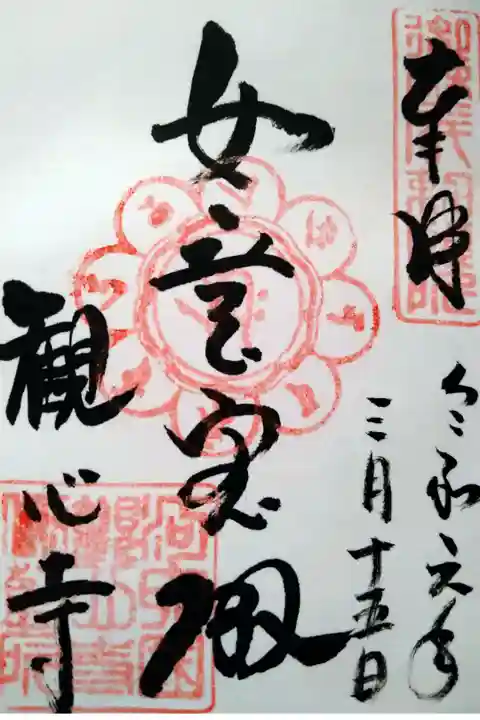 奉拝
令和六年
三月十五日
如意宝殿
観心寺